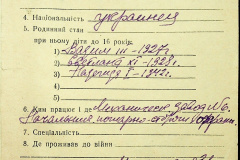 4. Національність украинец
5. Родинний стан
при ньому діти до 16 років:
1. Вадим III - 1927 г.
2. Светлана XI - 1928 г.
3. Надежда I - 1942 г.
4.
5.
6. Ким працює і де Механический завод № 6.
Начальник пожарно-
7. Спеціальність
8. Де проживав до війни